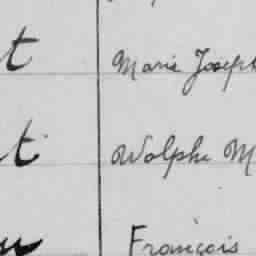 t Marie Joseph
t Adolphe M
François